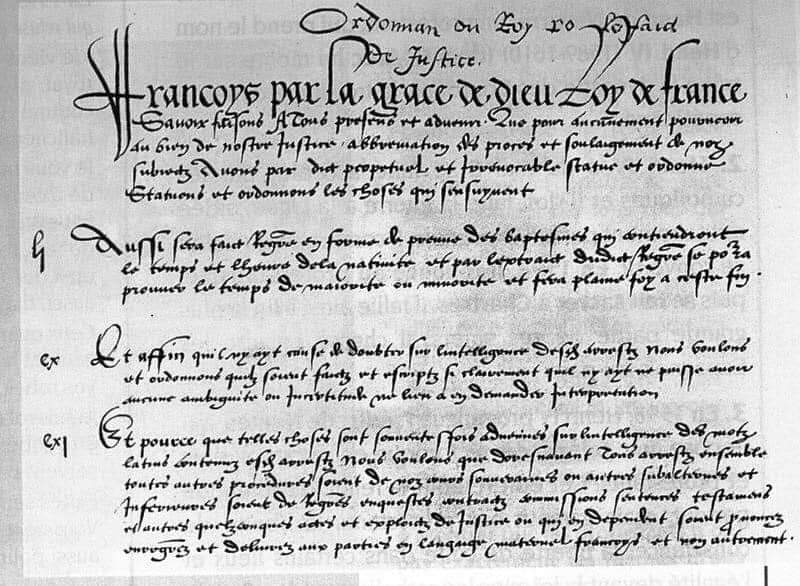 Ordonnan du Roy Sur le faid
De Justice.
Francoys par la grace de dieu Roy de france
Savoir faisons A Tous presens et advenir. Que pour aucunement pourveoir
au bien de nostre Justice abbreviation des proces et soulaigement de noz
subiectz Avons par edict perpetuel et Irrevocable statue et ordonne
Statuons et ordonnons les choses qui sensuyvent
Aussi sera faict Regre en forme de preuve des baptesmes qui contiendront
le temps et lheure dela nativite et par lextraict dudict Regre se pora
prouver le temps de maiorite ou minorite et fera plaine foy a ceste fin.
cx Et affin quil ny ayt cause de doubter sur lintelligence desd arrestz Nous voulons
et ordonnons quilz soient faictz et escriptz si clairement quil ny ayt ne puisse avoir
aucune ambiguite ou Incertitude ne lieu a en demander Interpretation
cxi Et pource que telles choses sont souventesfois advenues sur lintelligence des motz
latins contenuz esd arrestz Nous voulons que doresnavant Tous arrestz ensemble
toutes autres procedures soient de noz cours souveraines ou autres subalternes et
Inferieures soient de Regres enquestes contractz commissions sentences testamens
et autres quelzconques actes et exploictz de Justice ou qui en dependent soient prononcez
enregrez et delivrez aux parties en langaige maternel francoys et non autrement.